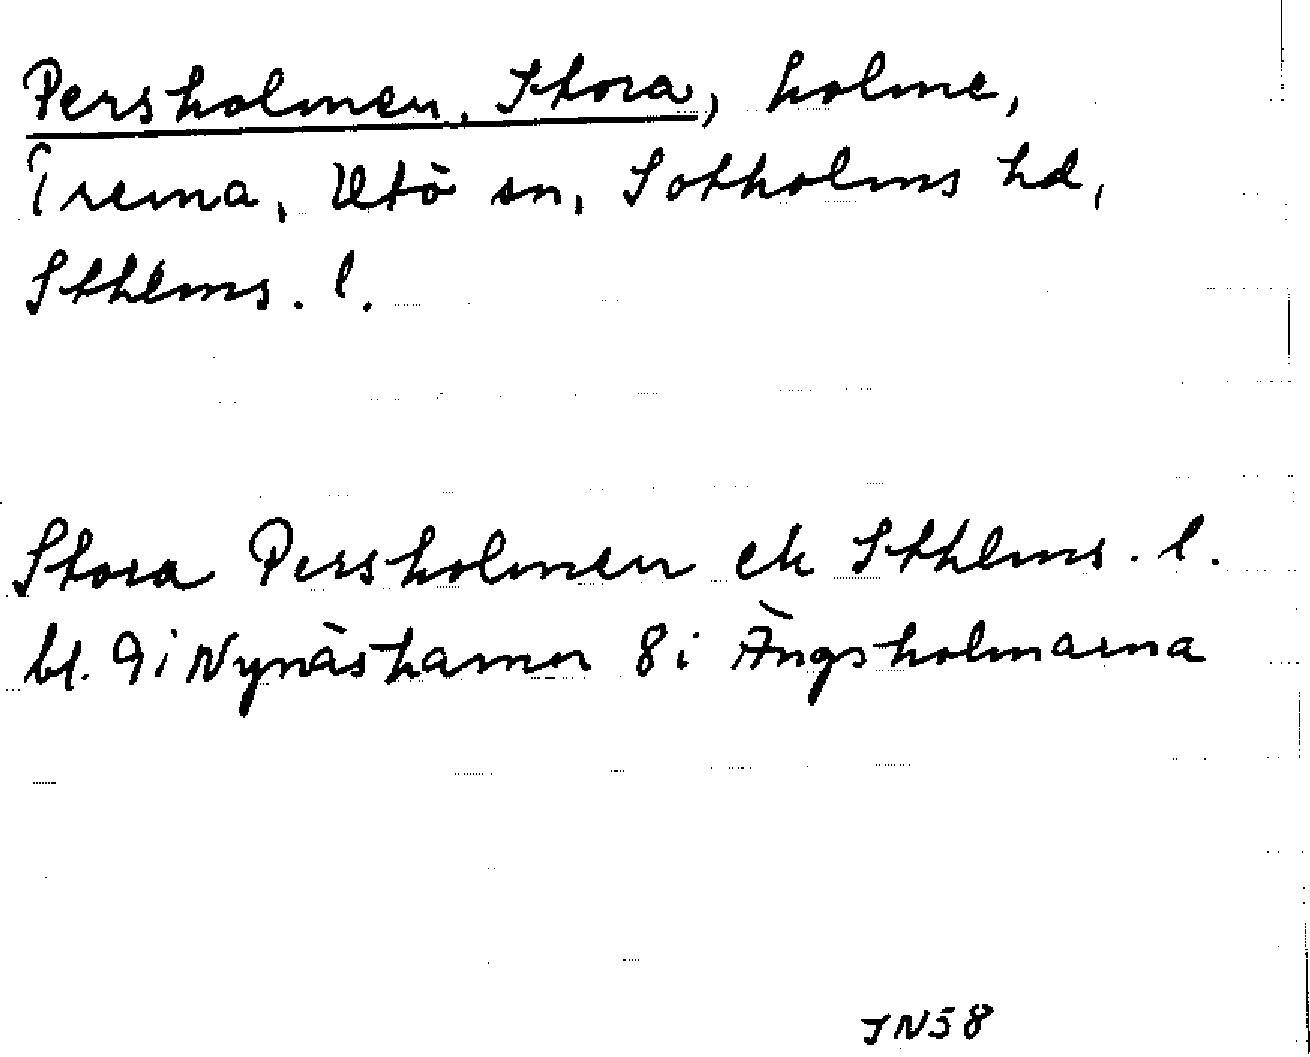 Persholmen, Stora, holme,
Trema, Utö sn, Sotholms hd,
Sthlms. l.
Stora Persholmen ek Sthlms. l.
bl. 9i Nynäshamn 8i Ängsholmarna
JN58